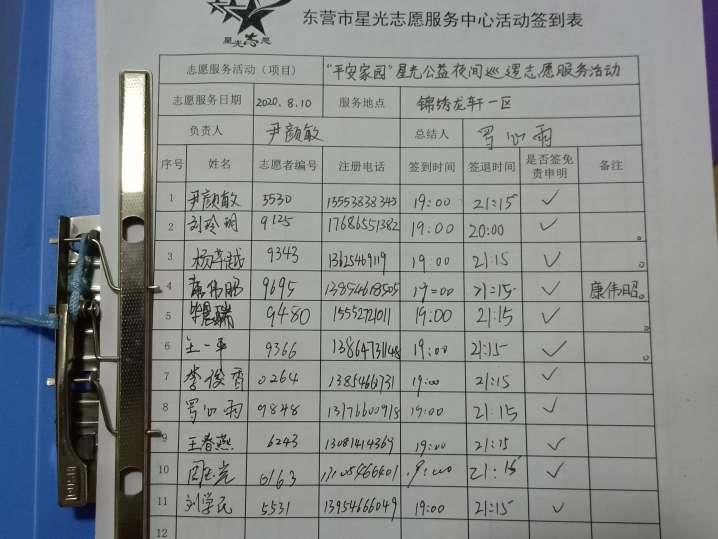 东营市星光志愿服务中心活动签到表
星光志愿
志愿服务活动（项目） "平安家园"星光公益夜间巡逻志愿服务活动
志愿服务日期 2020.8.10 服务地点 锦绣龙轩一区
负责人 尹颜敏 总结人 雨
序号 姓名 志愿者编号 注册电话 签到时间 签退时间 是否签免责申明 备注
1 尹颜敏 5530 15553838345 19:00 21:15 ✓
2 刘玲玥 9125 17686551382 19:00 20:00 ✓
3 杨 越 9343 13625469119 19:00 21:15 ✓
4 康伟昭 9695 19:00 21:15 ✓ 康伟昭。
5 瑞 9480 15552721011 19:00 21:15 ✓
6 王一平 9366 13864731148 19:00 21:15 ✓
7 李俊香 0264 1385466731 19:00 21:15 ✓
8 雨 9848 13176600918 19:00 21:15 ✓
9 王春燕 6243 13081414369 19:00 21:15 ✓
10 周 0163 21:15 ✓
11 刘学民 5531 13954666049 19:00 21:15 ✓
12